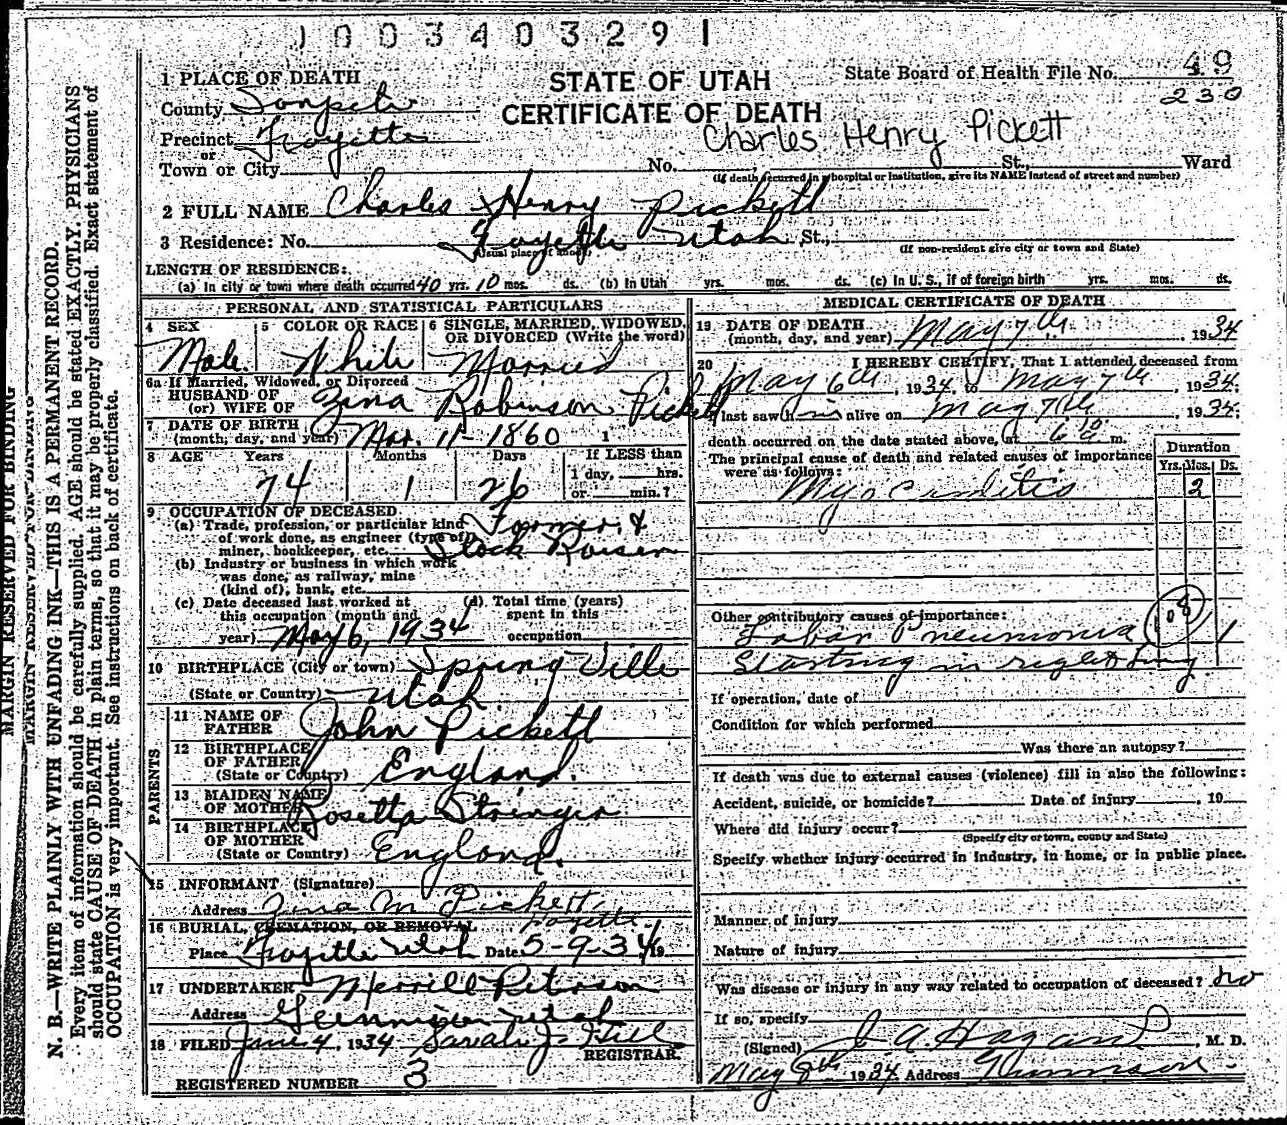 1003403291
1 PLACE OF DEATH
STATE OF UTAH
State Board of Health File No. 49
County Sanpete
CERTIFICATE OF DEATH
230
Precinct Fayette
Charles Henry Pickett
or
Town or City No. St., Ward
(If death occurred in a hospital or institution, give its NAME instead of street and number)
2 FULL NAME Charles Henry Pickett
3 Residence: No. Fayette Utah St.,
(Usual place of abode) (If non-resident give city or town and State)
LENGTH OF RESIDENCE:
(a) In city or town where death occurred 40 yrs. 10 mos. ds. (b) In Utah yrs. mos. ds. (c) In U. S., if of foreign birth yrs. mos. ds.
PERSONAL AND STATISTICAL PARTICULARS
4 SEX 5 COLOR OR RACE 6 SINGLE, MARRIED, WIDOWED,
OR DIVORCED (Write the word)
Male White Married
6a If Married, Widowed, or Divorced
HUSBAND OF
(or) WIFE OF Zina Robinson Pickett
7 DATE OF BIRTH
(month, day, and year) Mar. 11 - 1860 1
8 AGE Years Months Days If LESS than
1 day, hrs.
74 1 26 or min.?
9 OCCUPATION OF DECEASED
(a) Trade, profession, or particular kind Farmer &
of work done, as engineer (type of)
miner, bookkeeper, etc. Stock Raiser
(b) Industry or business in which work
was done, as railway, mine
(kind of), bank, etc.
(c) Date deceased last worked at (d) Total time (years)
this occupation (month and spent in this
year) May 6, 1934 occupation
10 BIRTHPLACE (City or town) Spring Ville
(State or Country) Utah
PARENTS
11 NAME OF
FATHER John Pickett
12 BIRTHPLACE
OF FATHER
(State or Country) England.
13 MAIDEN NAME
OF MOTHER Rosetta Stringer
14 BIRTHPLACE
OF MOTHER
(State or Country) England.
15 INFORMANT (Signature)
Address Zina M Pickett
Fayette
16 BURIAL, CREMATION, OR REMOVAL
Place Fayette Utah Date 5-9-34 19
17 UNDERTAKER Merrill Peterson
Address Gunnison Utah
18 FILED June 4, 1934 Sarah J Hill
REGISTRAR.
REGISTERED NUMBER 3
MEDICAL CERTIFICATE OF DEATH
19 DATE OF DEATH
(month, day, and year) May 7th 1934
20 I HEREBY CERTIFY, That I attended deceased from
May 6th, 1934 to May 7th 1934;
I last saw him alive on May 7th 1934;
death occurred on the date stated above, at m.
The principal cause of death and related causes of importance
were as follows:
Duration
Yrs. Mos. Ds.
Myocarditis 2
Other contributory causes of importance:
108
Lobar Pneumonia 1
Starting in right lung
If operation, date of
Condition for which performed
Was there an autopsy?
If death was due to external causes (violence) fill in also the following:
Accident, suicide, or homicide? Date of injury , 19
Where did injury occur?
(Specify city or town, county and State)
Specify whether injury occurred in industry, in home, or in public place.
Manner of injury
Nature of injury
Was disease or injury in any way related to occupation of deceased? no
If so, specify
(Signed) J. A. Hagan , M. D.
May 8th 1934 Address Gunnison.
MARGIN RESERVED FOR BINDING
N. B.—WRITE PLAINLY WITH UNFADING INK—THIS IS A PERMANENT RECORD.
Every item of information should be carefully supplied. AGE should be stated EXACTLY. PHYSICIANS
should state CAUSE OF DEATH in plain terms, so that it may be properly classified. Exact statement of
OCCUPATION is very important. See instructions on back of certificate.